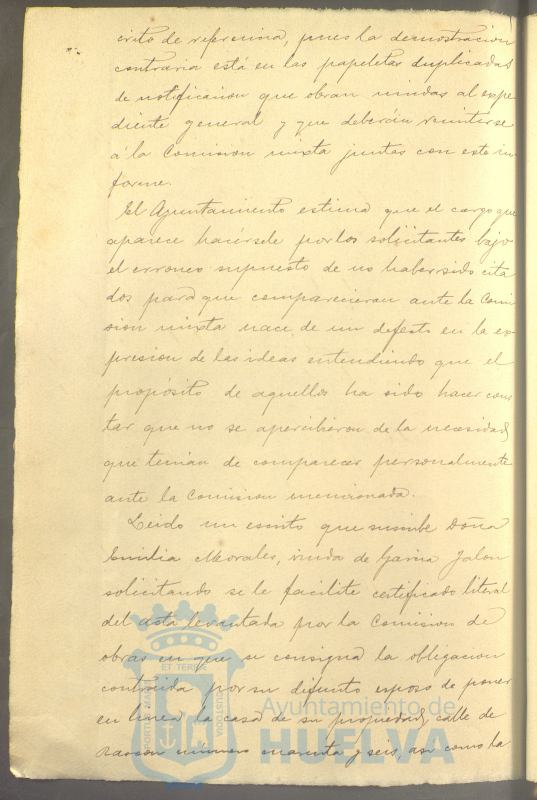 crito de referencia, pues la demostracion
contraria está en las papeletas duplicadas
de notificacion que obran unidas al expe
diente general y que deberán remitirse
á la Comision mixta juntas con este in
forme.
El Ayuntamiento estima que el cargo que
aparece hacérsele por los solicitantes bajo
el erroneo supuesto de no haber sido cita
dos para que comparecieran ante la Comi
sion mixta nace de un defecto en la ex
presion de las ideas entendiendo que el
propósito de aquellos ha sido hacer cons
tar que no se apercibieron de la necesidad
que tenian de comparecer personalmente
ante la Comision mencionada.
Leido un escrito que suscribe Doña
Emilia Morales, viuda de Garcia Jalon
solicitando se le facilite certificado literal
del acta levantada por la Comision de
obras en que se consigna la obligacion
contraida por su difunto esposo de poner
en linea la casa de su propiedad, calle de
Rascon numero cuarenta y seis, asi como la
PORTUS MARIS ET TERRE CUSTODIA
Ayuntamiento de
HUELVA